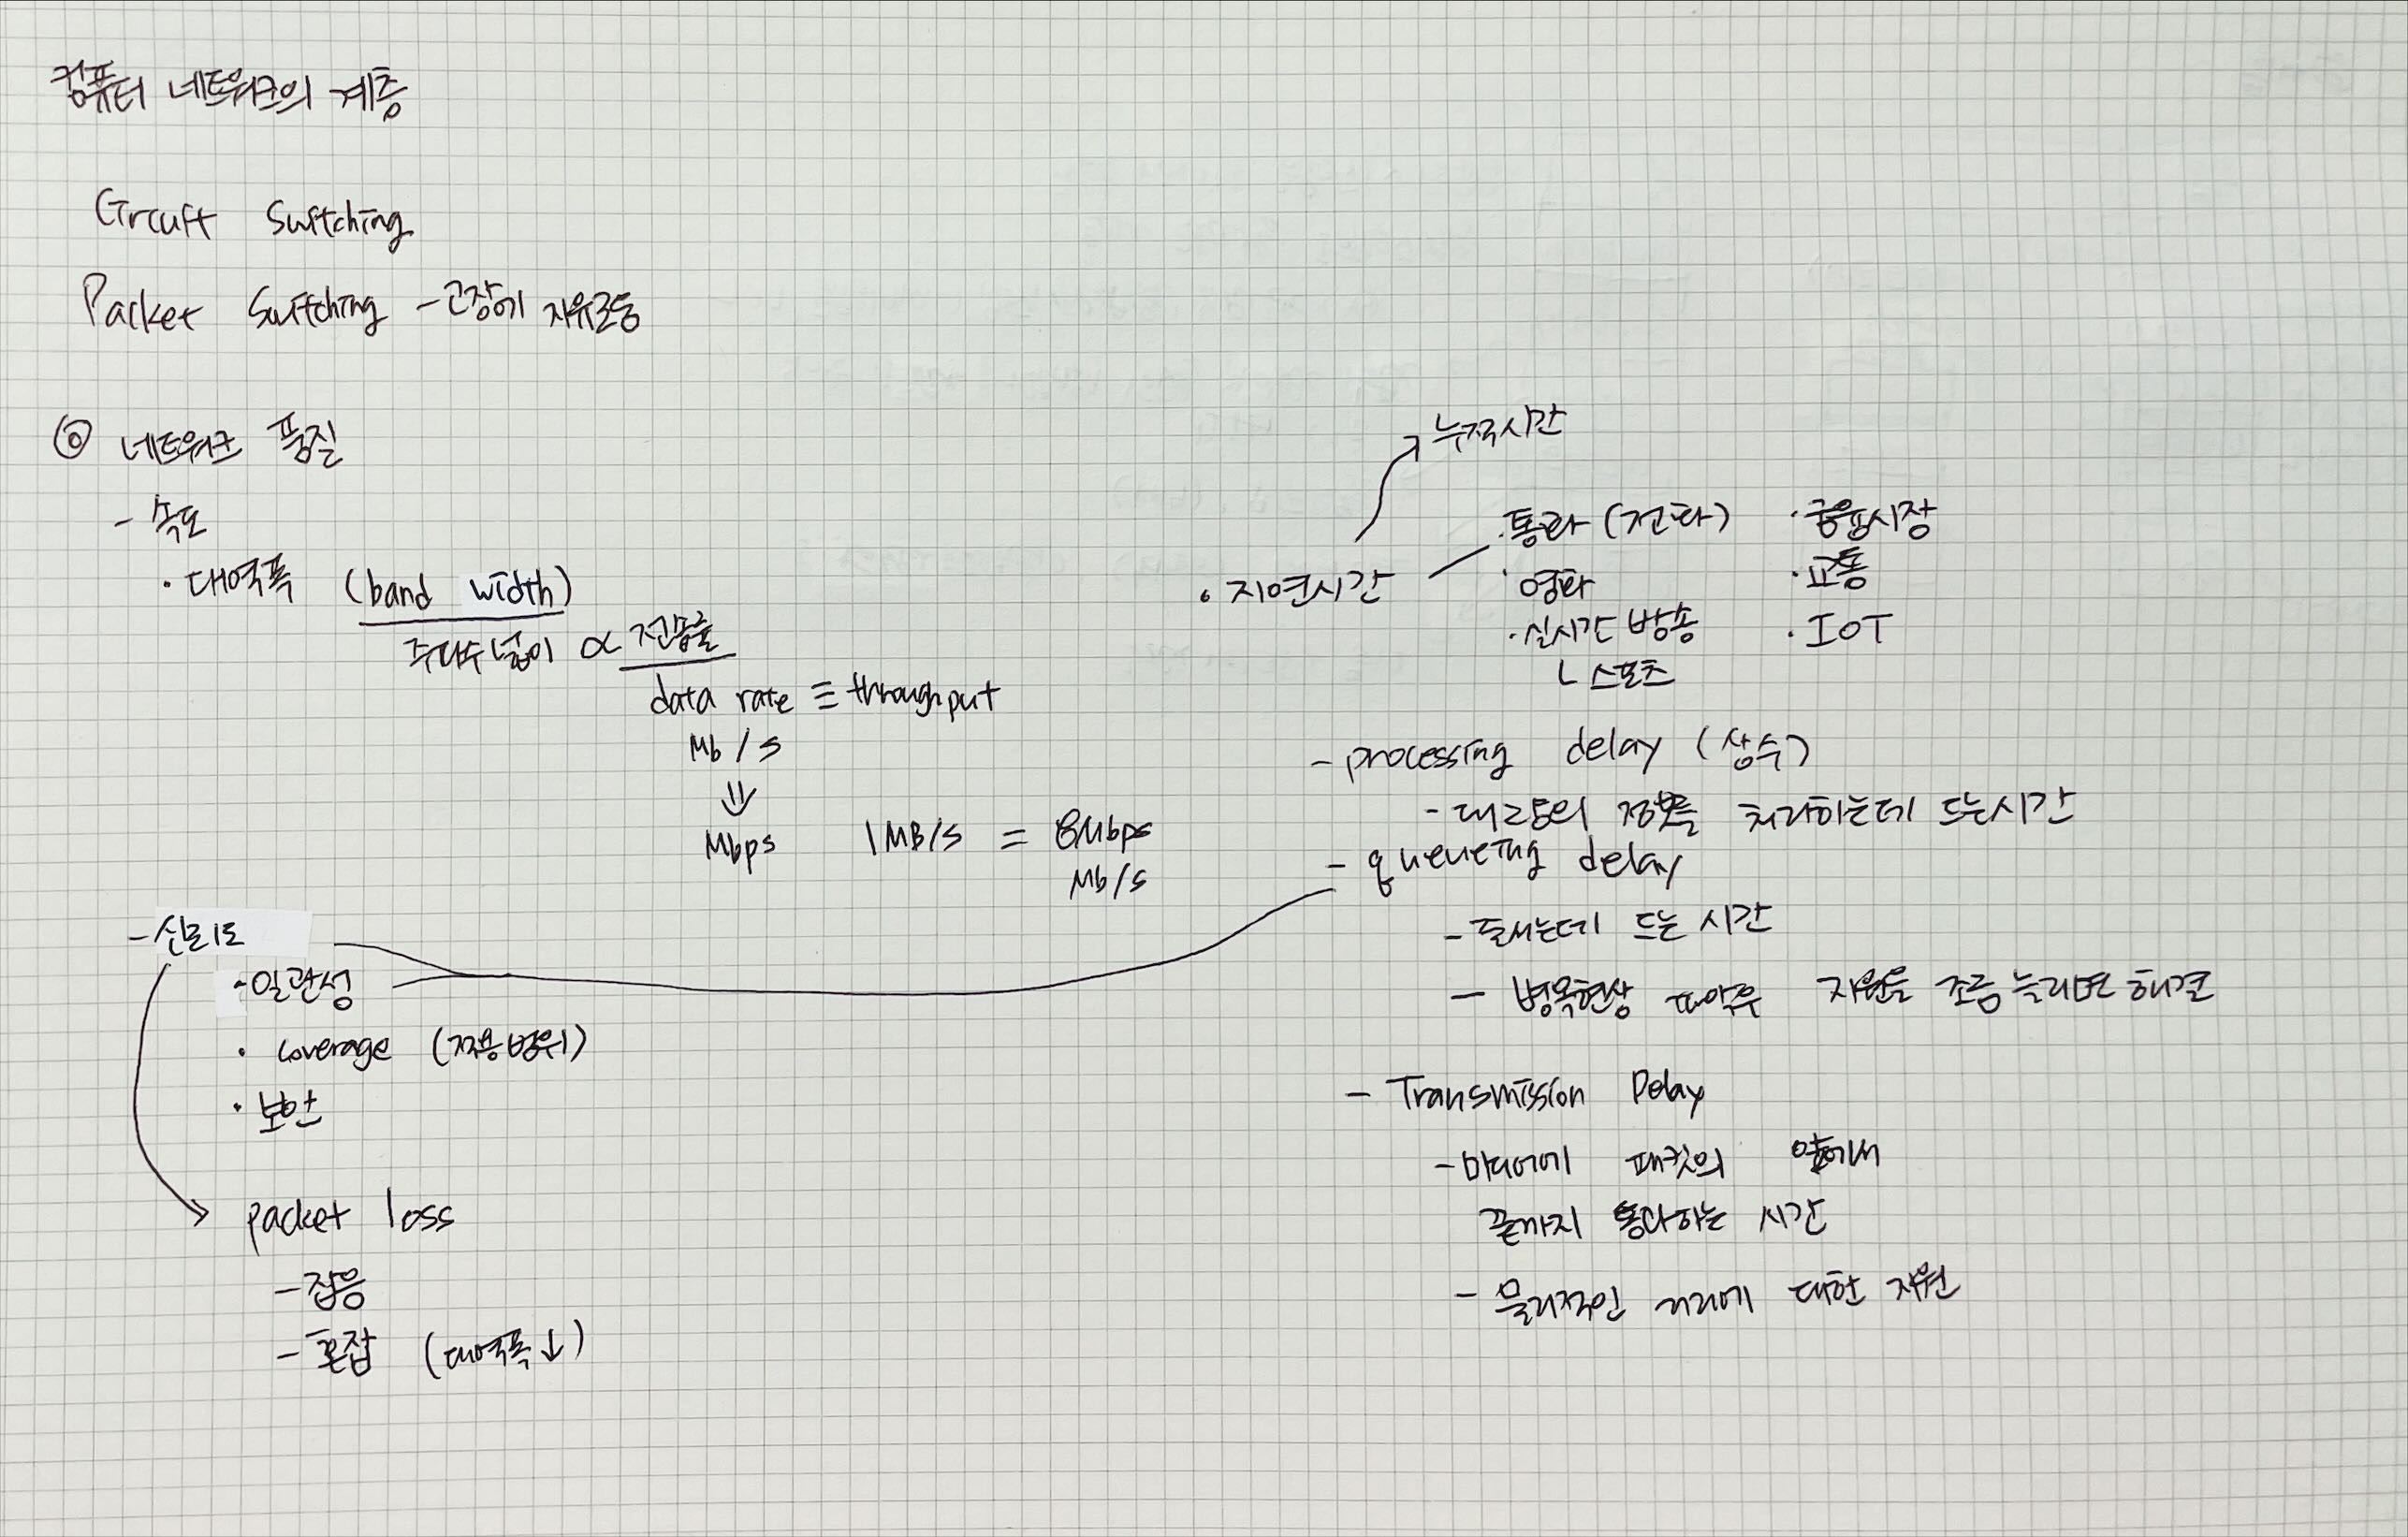 컴퓨터 네트워크의 계층
Circuit Switching
Packet Switching - 고장에 자유로움
◎ 네트워크 품질
- 속도
· 대역폭 (band width)
주파수 넓이 ∝ 전송률
data rate ≡ throughput
Mb / s
⇓
Mbps 1MB/s = 8Mbps
Mb/s
- 신뢰도
- 일관성
· coverage (적용범위)
· 보안
packet loss
- 잡음
- 혼잡 (대역폭↓)
누적시간
· 지연시간
· 통화 (전화) · 금융시장
· 영화 · 교통
· 실시간 방송 · IOT
ㄴ 스포츠
- processing delay (상수)
- 대량의 정보를 처리하는데 드는시간
- queueing delay
- 줄서는데 드는 시간
- 병목현상 자원을 조금 늘리면 해결
- Transmission Delay
- 미디어에 패킷의 앞에서
끝까지 통과하는 시간
- 물리적인 거리에 대한 지연